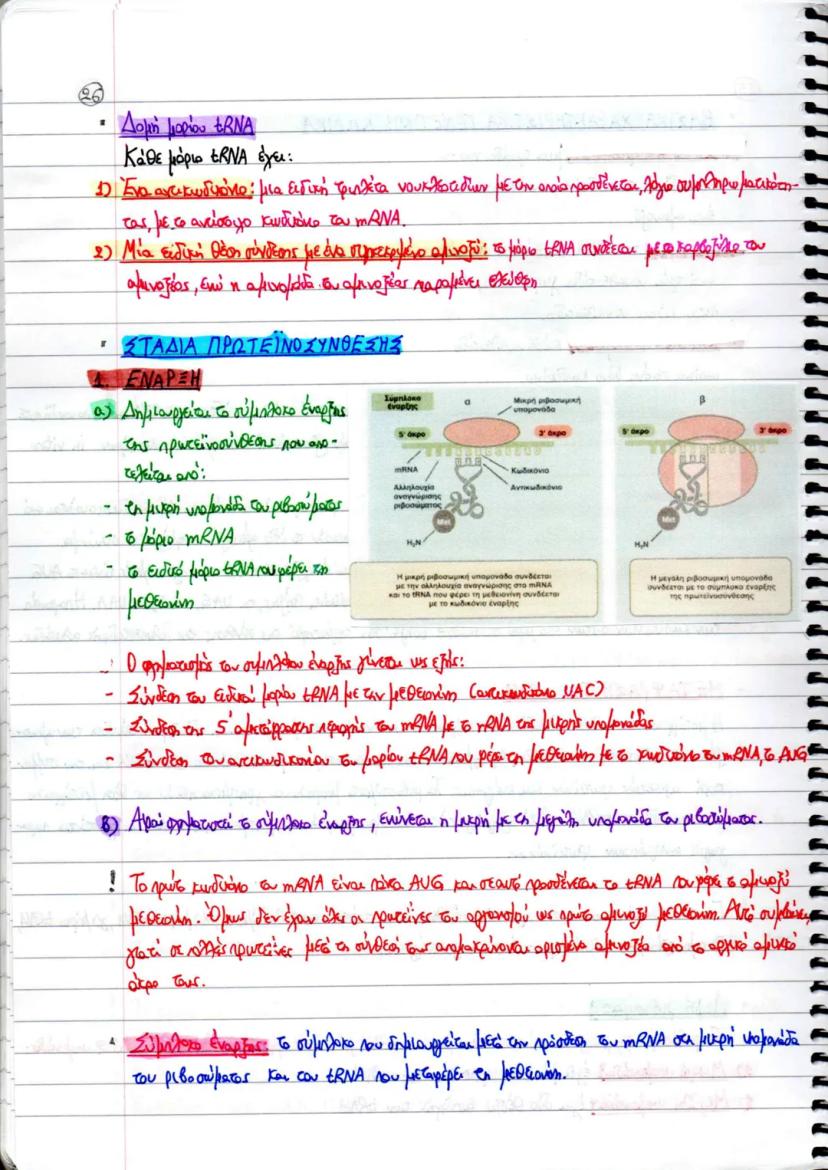 26
Δομή μορίου tRNA
Κάθε μόριο tRNA έχει:
1) Ένα αντικωδικόνιο: μια ειδική τριπλέτα νουκλεοτιδίων με την οποία προσδένεται, λόγω συμπληρωματικότη-
τας, με το αντίστοιχο κωδικόνιο του mRNA.
2) Μία ειδική θέση σύνδεσης με ένα συγκεκριμένο αμινοξύ: το μόριο tRNA συνδέεται με το καρβοξύλιο του
αμινοξέος, ενώ η αμινομάδα του αμινοξέος παραμένει ελεύθερη
ΣΤΑΔΙΑ ΠΡΩΤΕΪΝΟΣΥΝΘΕΣΗΣ
1. ΕΝΑΡΞΗ
α) Δημιουργείται το σύμπλοκο έναρξης
της πρωτεϊνοσύνθεσης που απο-
τελείται από:
- τη μικρή υπομονάδα του ριβοσώματος
- το μόριο mRNA
- το ειδικό μόριο tRNA που φέρει τη
μεθειονίνη
Σύμπλοκο
έναρξης
α
Μικρή ριβοσωμική
υπομονάδα
5' άκρο
3' άκρο
mRNA
Κωδικόνιο
Αλληλουχία
αναγνώρισης
ριβοσώματος
Αντικωδικόνιο
Met
H₂N
Η μικρή ριβοσωμική υπομονάδα συνδέεται
με την αλληλουχία αναγνώρισης στο mRNA
και το tRNA που φέρει τη μεθειονίνη συνδέεται
με το κωδικόνιο έναρξης
β
5' άκρο
3' άκρο
Met
H₂N
Η μεγάλη ριβοσωμική υπομονάδα
συνδέεται με το σύμπλοκο έναρξης
της πρωτεϊνοσύνθεσης
Ο σχηματισμός του συμπλόκου έναρξης γίνεται ως εξής:
- Σύνδεση του ειδικού μορίου tRNA με την μεθειονίνη (αντικωδικόνιο UAC)
- Σύνδεση της 5' αμετάφραστης περιοχής του mRNA με το rRNA της μικρής υπομονάδας
- Σύνδεση του αντικωδικονίου του μορίου tRNA που φέρει τη μεθειονίνη με το κωδικόνιο του mRNA, το AUG
β) Αφού σχηματιστεί το σύμπλοκο έναρξης, ενώνεται η μικρή με τη μεγάλη υπομονάδα του ριβοσώματος.
! Το πρώτο κωδικόνιο του mRNA είναι πάντα AUG και σε αυτό προσδένεται το tRNA που φέρει το αμινοξύ
μεθειονίνη. Όμως δεν έχουν όλες οι πρωτεΐνες του οργανισμού ως πρώτο αμινοξύ μεθειονίνη. Αυτό συμβαίνει,
γιατί σε πολλές πρωτεΐνες μετά τη σύνθεσή τους απομακρύνονται ορισμένα αμινοξέα από το αρχικό αμινικό
άκρο τους.
Σύμπλοκο έναρξης: το σύμπλοκο που δημιουργείται μετά την πρόσδεση του mRNA στη μικρή υπομονάδα
του ριβοσώματος και του tRNA που μεταφέρει τη μεθειονίνη.